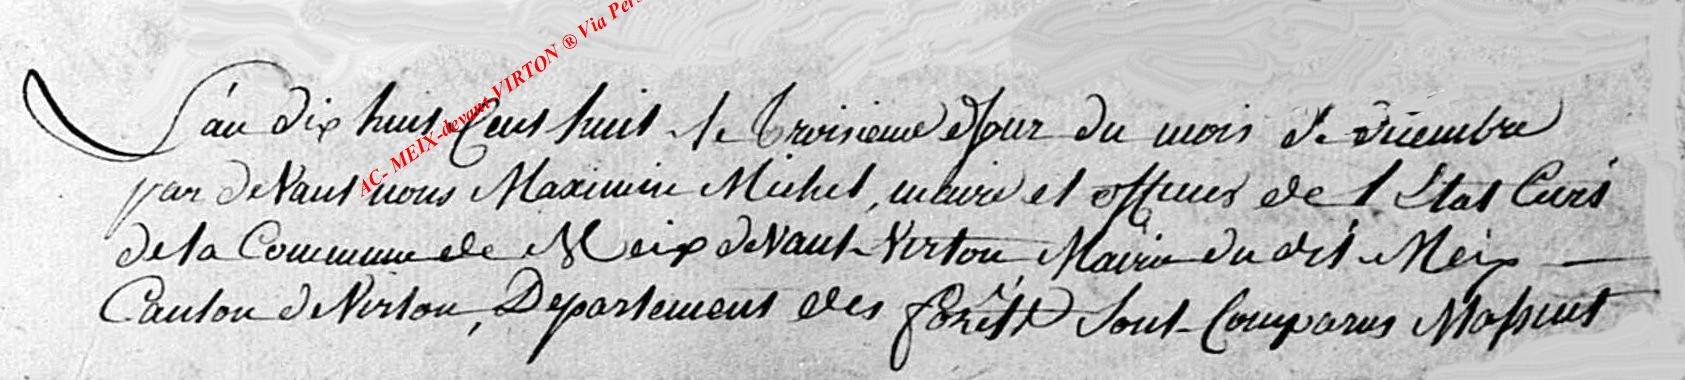 AC- MEIX-devant VIRTON ® Via Pers
L'an dix huit Cent huit le troisieme Jour du mois de Decembre
par deVant nous Maximin Michel, maire et officier de l'Etat Civil
de la Commune de Meix deVant Virton, Mairie du dit Meix
Canton de Virton, Departement des forêts sont Comparus